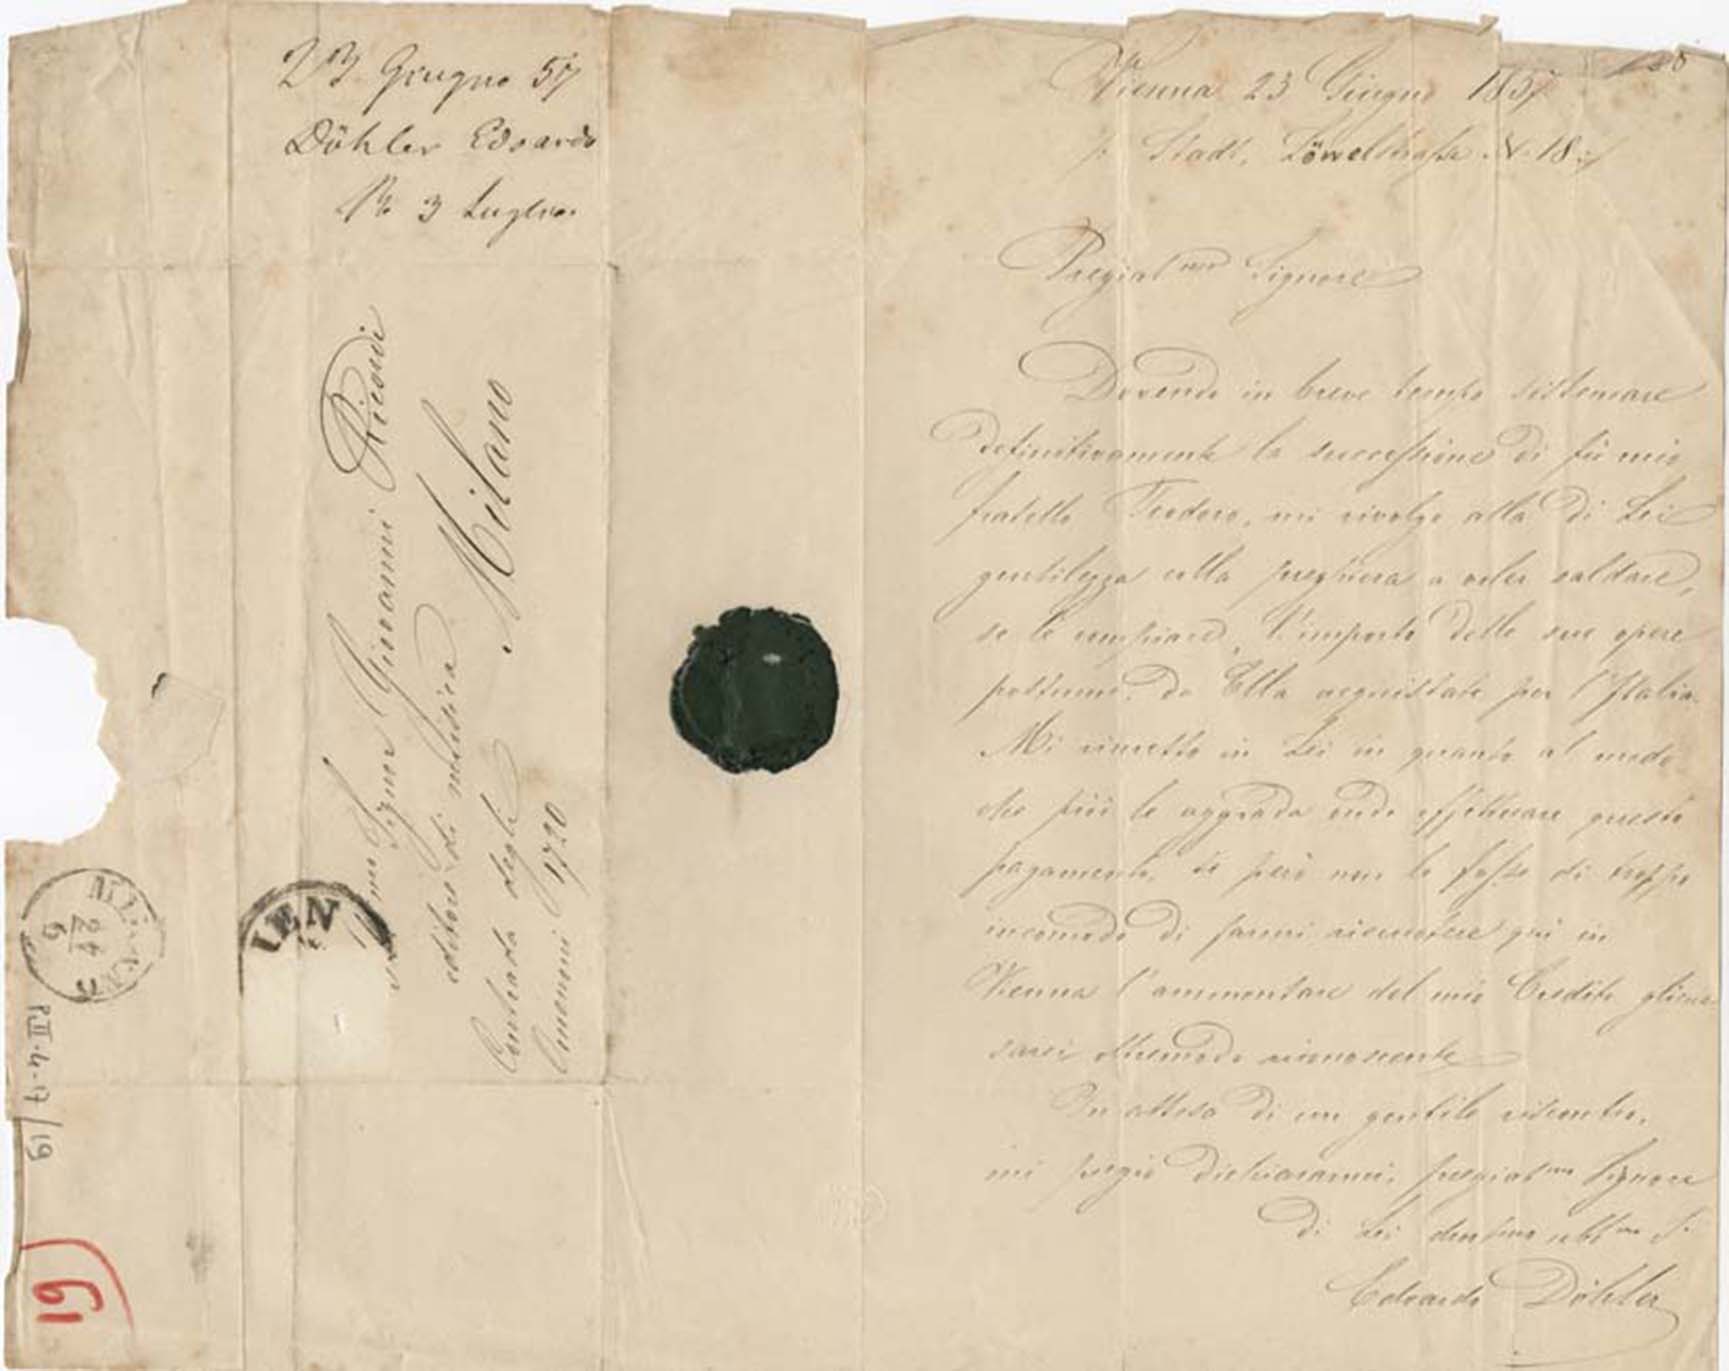 23 Giugno 57
Döhler Edoardo
R 3 Luglio
Signor Giovanni Ricordi
editore di musica
Milano
Contrada degli
Omenoni 1720
IEN
P.II.4.17/19
19
Vienna 23 Giugno 1857
Stadt, Löwelstraße N. 18
Pregiat.mo Signore
Dovendo in breve tempo sistemare
definitivamente la successione di fù mio
fratello Teodoro, mi rivolgo alla di Lei
gentilezza colla preghiera a voler saldare,
se le compiace, l'importo delle sue opere
postume da Ella acquistate per l'Italia.
Mi rimetto in Lei in quanto al modo
che più le aggrada onde effettuare questo
pagamento, se però non le fosse di troppo
incomodo di farmi riscuotere qui in
Vienna l'ammontare del mio Credito gliene
sarei oltremodo riconoscente
In attesa di un gentile riscontro,
mi pregio dichiararmi, pregiat.mo Signore
di Lei devmo obbmo S.
Edoardo Döhler